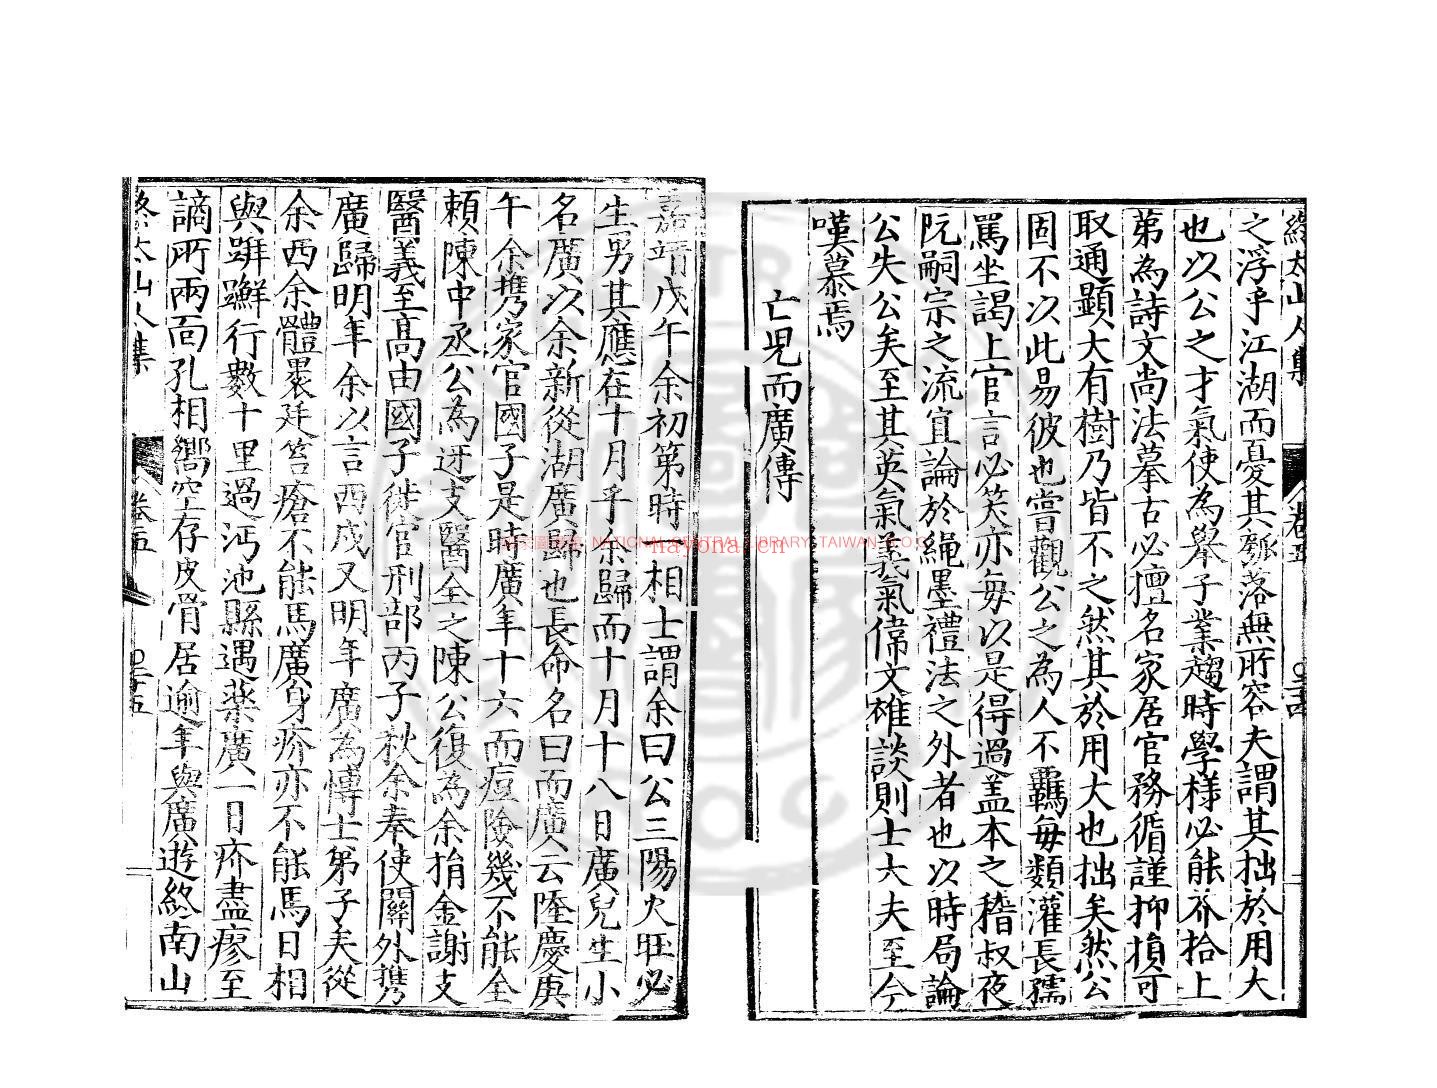 終太山人集 卷五 〇三十四
之浮乎江湖而憂其瓠落無所容夫謂其拙於用大
也以公之才氣使為舉子業趨時學樣必能芥拾上
第為詩文尚法摹古必擅名家居官務循謹抑損可
取通顯大有樹乃皆不之然其於用大也拙矣然公
固不以此易彼也嘗觀公之為人不羈每類灌長孺
罵坐謁上官言必笑亦每以是得過蓋本之稽叔夜
阮嗣宗之流宜論於繩墨禮法之外者也以時局論
公失公矣至其英氣義氣偉文雄談則士大夫至今
嘆慕焉
亡兒而廣傳
嘉靖戊午余初第時一相士謂余曰公三陽火旺必
生男其應在十月乎余歸而十月十八日廣兒生小
名廣以余新從湖廣歸也長命名曰而廣云隆慶庚
午余攜家官國子是時廣年十六而痘險幾不能全
賴陳中丞公為迓支醫全之陳公復為余捐金謝支
醫義至高由國子徙官刑部丙子秋余奉使關外攜
廣歸明年余以言西戍又明年廣為博士弟子矣從
余西余體褁廷笞瘡不能馬廣身疥亦不能馬日相
與跰𨇤行數十里過沔池縣遇藥廣一日疥盡瘳至
謫所兩面孔相嚮空存皮骨居逾年與廣遊終南山
終太山人集 卷五 〇三十五
NATIONAL CENTRAL LIBRARY, TAIWAN R.O.C
nayona.cn